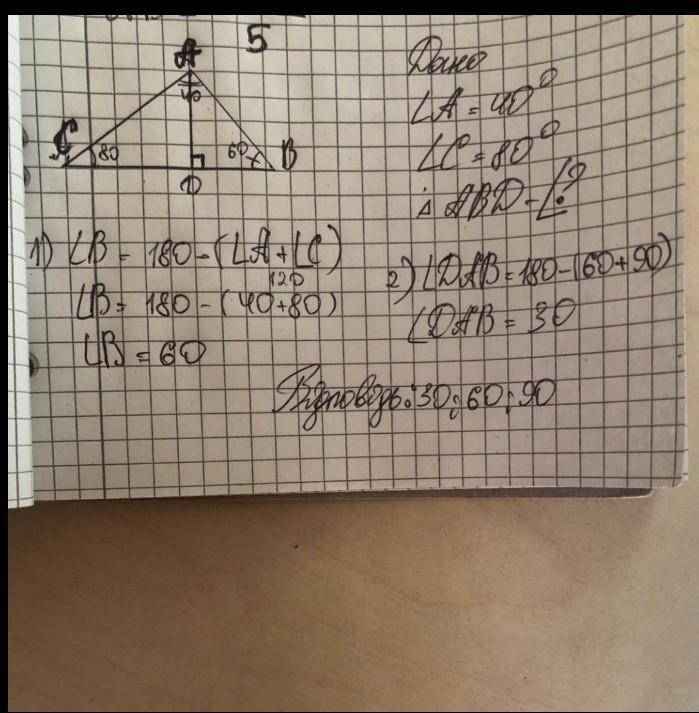 5
A
40
C
80
60
B
D
Дано
∠A = 40°
∠C = 80°
△ ABD - ∠?
1) ∠B = 180 - (∠A + ∠C)
120
∠B = 180 - (40 + 80)
∠B = 60
2) ∠DAB = 180 - (60 + 90)
∠DAB = 30
Відповідь: 30; 60; 90